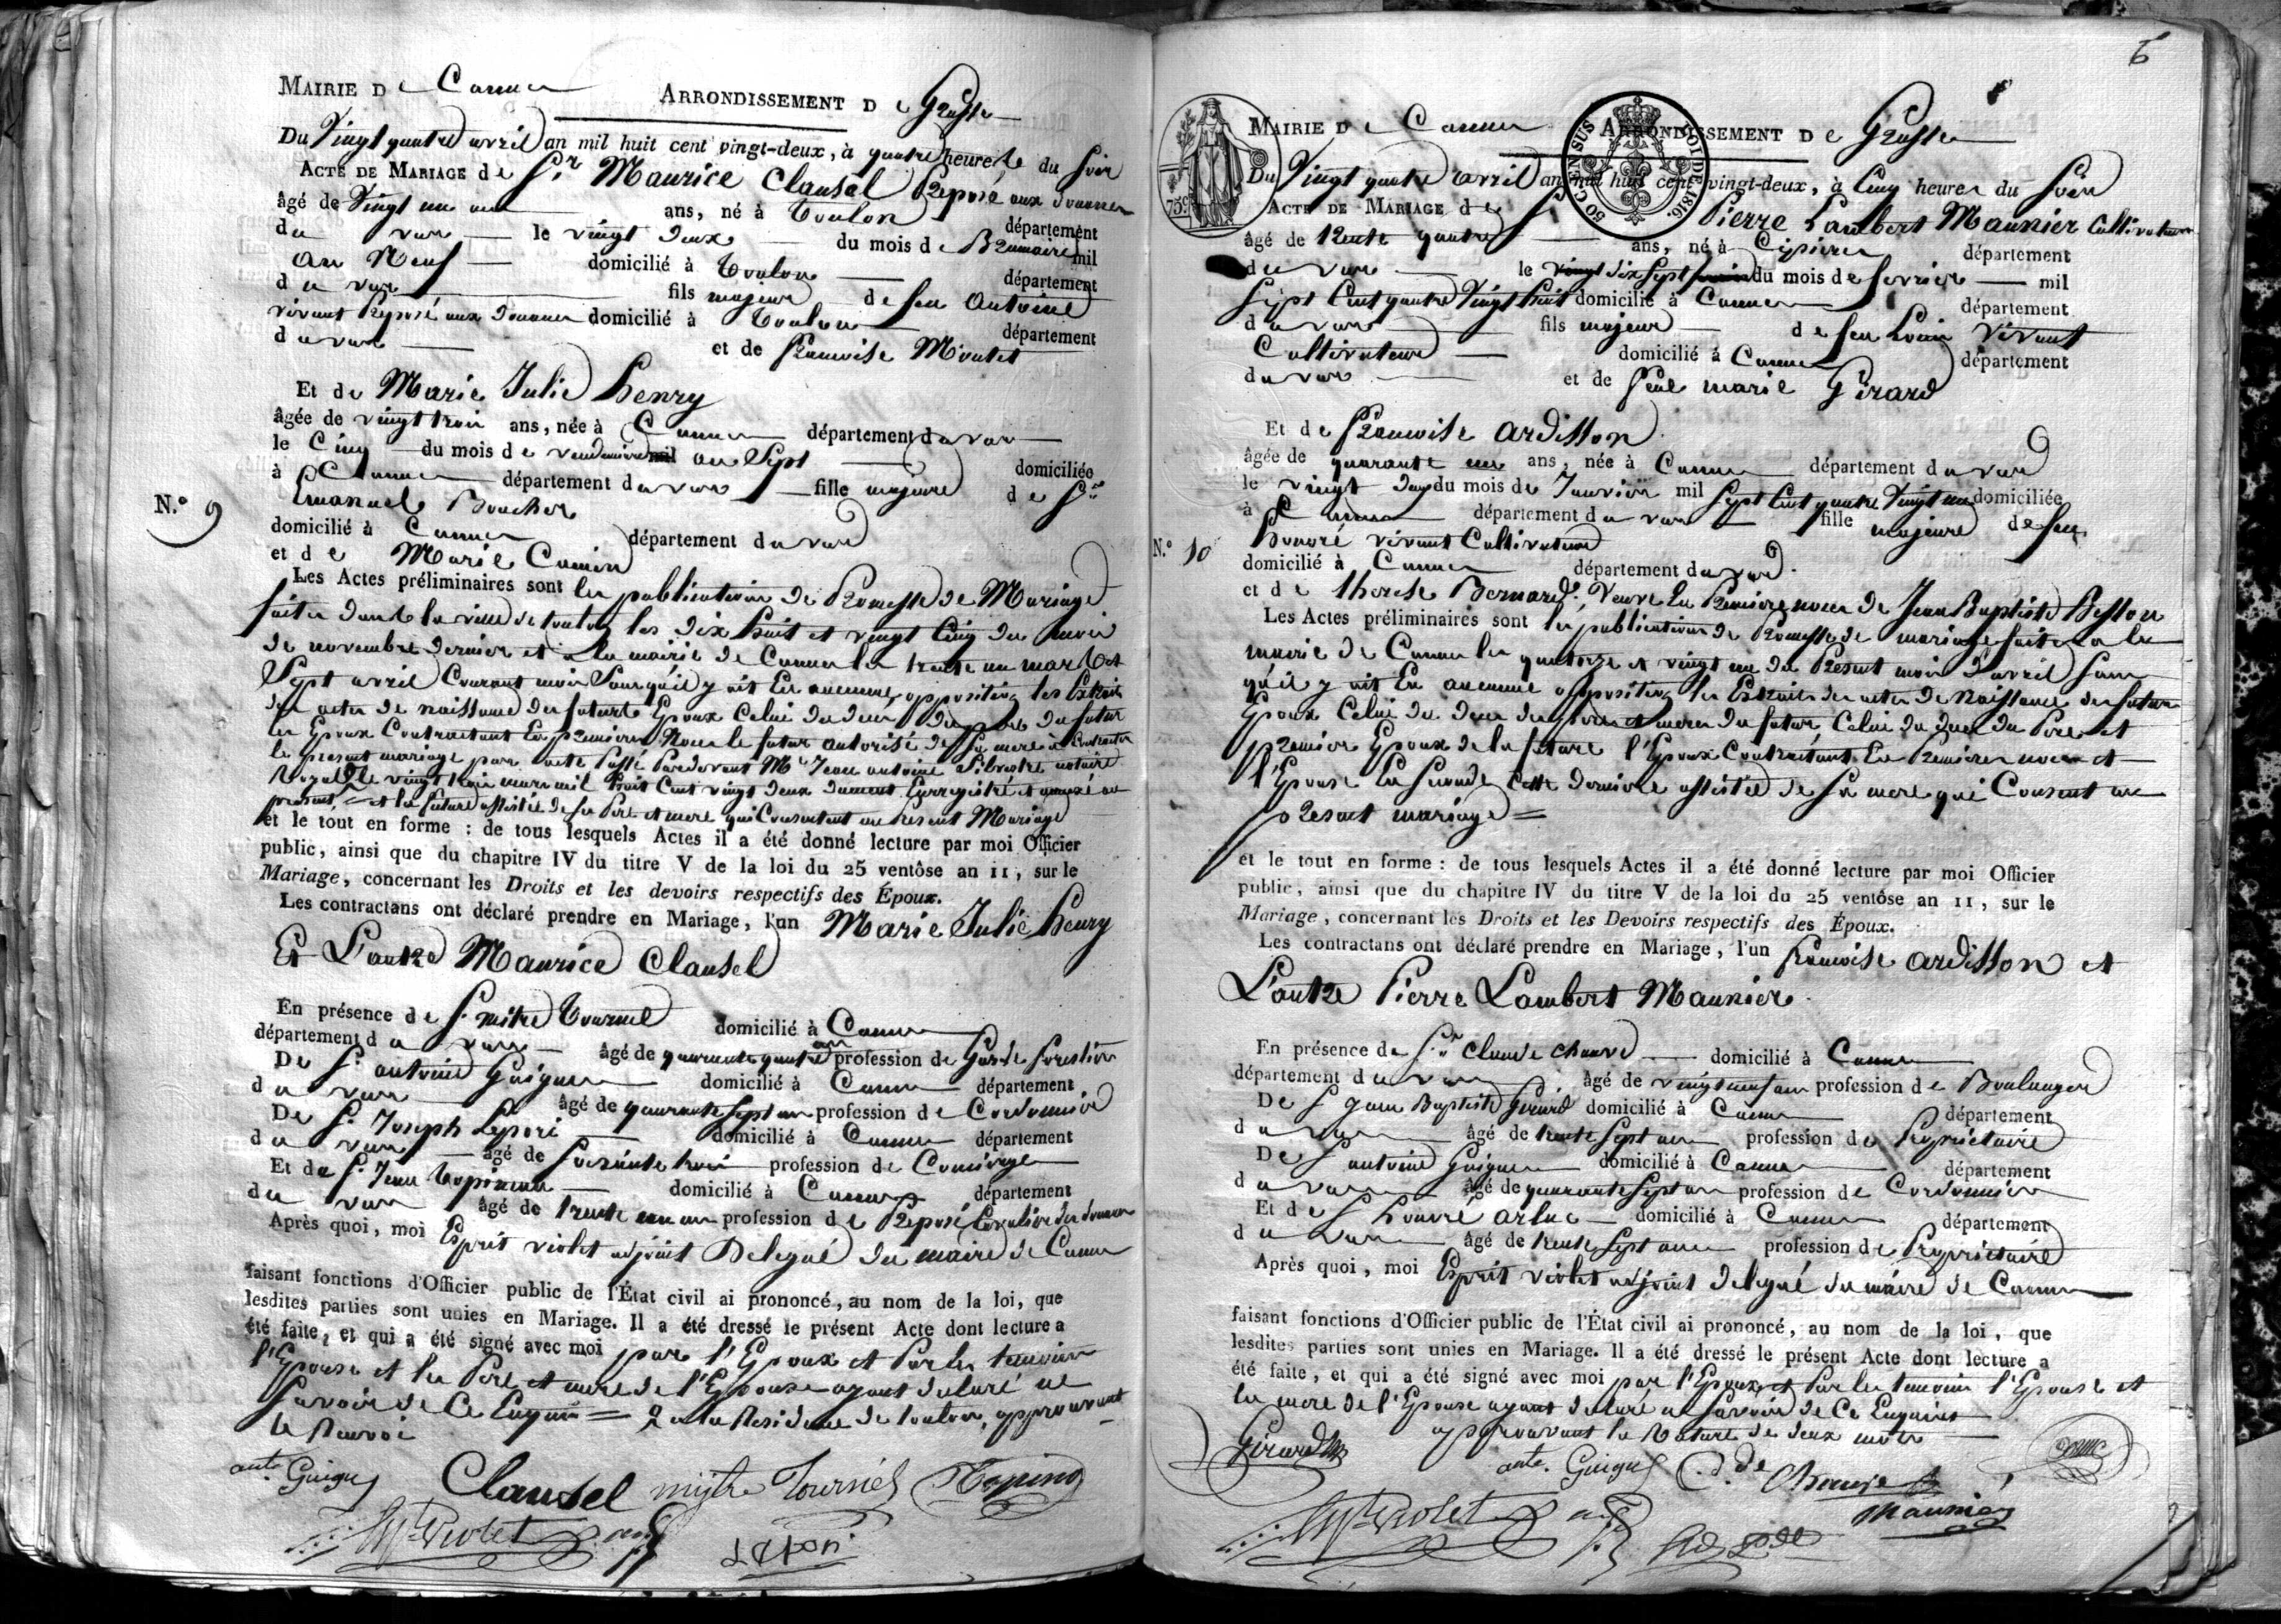 MAIRIE De Cannes ARRONDISSEMENT De Grasse
Du Vingt quatre avril an mil huit cent vingt-deux, à quatre heures du Soir
ACTE DE MARIAGE de Sr. Maurice Clausel Preposé aux douanes
âgé de Vingt un ans ans, né à Toulon département
du var le vingt deux du mois de Brumaire mil
an Neuf domicilié à Toulon département
du var fils majeur de feu Antoine
vivant Preposé aux Douanes domicilié à Toulon département
du var et de Francoise Moutet
Et de Marie Julie henry
âgée de vingt trois ans, née à Cannes département du var
le Cinq du mois de vendemiaire mil an Sept domiciliée
à Cannes département du var fille majeure de Sr.
N.° 9
Emanuel Boucher
domicilié à Cannes département du var
et de Marie Camin
Les Actes préliminaires sont les publications de Promesse de Mariage
faites dans la ville de toulon les dix huit et vingt Cinq du mois
de novembre dernier et a la mairie de Cannes les trente un mars et
Sept avril Courant mois Sans qu'il y ait Eu aucune opposition, les Extraits
des actes de naissance des futurs Epoux Celui du deces du pere du futur
les Epoux Contractant En premieres Noces le futur autorisé de Sa mere à Contracter
le present mariage par acte Passé Pardevant Me. Jean antoine Silvestre notaire
Royal le vingt trois mars mil huit Cent vingt deux dument Enregistré et annexé au
present, et la future assistée de Ses Pere et mere qui Consentent au Present Mariage
et le tout en forme : de tous lesquels Actes il a été donné lecture par moi Officier
public, ainsi que du chapitre IV du titre V de la loi du 25 ventôse an 11, sur le
Mariage, concernant les Droits et les devoirs respectifs des Époux.
Les contractans ont déclaré prendre en Mariage, l'un Marie Julie henry
Et L'autre Maurice Clausel
En présence de Sr. mitre Tournel domicilié à Cannes
département du var âgé de quarante quatre an profession de Garde forestier
De Sr. antoine Guigues domicilié à Cannes département
du var âgé de quarante Sept ans profession de Cordonnier
De Sr. Joseph Lepori domicilié à Cannes département
du var âgé de Soixante trois profession de Concierge
Et de Sr. Jean domicilié à Cannes département
du var âgé de trente un an profession de Preposé Cavalier des douanes
Après quoi, moi Esprit violet adjoint Delegué du maire de Cannes
faisant fonctions d'Officier public de l'État civil ai prononcé, au nom de la loi, que
lesdites parties sont unies en Mariage. Il a été dressé le présent Acte dont lecture a
été faite, et qui a été signé avec moi par l'Epoux et Par les temoins
l'Epouse et les Pere et mere de l'Epouse ayant declaré ne
Savoir de Ce Enquis = a la Residence de toulon, approuvant
le Renvoi
ante. Guigues Clausel mitre Tournel
Violet adj Lepori
6
MAIRIE De Cannes ARRONDISSEMENT De Grasse
75 c.
50 CEN SUS LOI DE 1816.
Du Vingt quatre avril an mil huit cent vingt-deux, à Cinq heures du Soir
ACTE DE MARIAGE de Pierre Lambert Maunier Cultivateur
âgé de trente quatre ans, né à Cipieres département
du var le vingt dix Sept du mois de fevrier mil
Sept Cent quatre Vingt huit domicilié à Cannes département
du var fils majeur de feu Louis Vivant
Cultivateur domicilié à Cannes département
du var et de feue marie Girard
Et de Francoise ardisson
âgée de quarante un ans, née à Cannes département du var
le vingt du mois de Janvier mil Sept Cent quatre Vingt un domiciliée
à Cannes département du var fille majeure de feu
N.° 10
honoré vivant Cultivateur
domicilié à Cannes département du var
et de therese Bernard. Veuve En Premiere noces de Jean Baptiste Besson
Les Actes préliminaires sont les publications de Promesse de mariage faites a la
mairie de Cannes les quatorze et vingt un du Present mois d'avril Sans
qu'il y ait Eu aucune opposition, les Extraits des actes de Naissance des futurs
Epoux Celui du deces des pere et mere du futur, Celui du deces du Pere et
premier Epoux de la future l'Epoux Contractant En Premieres noces et
l'Epouse En Secondes Cette derniere assistée de Sa mere qui Consent au
present mariage =
et le tout en forme : de tous lesquels Actes il a été donné lecture par moi Officier
public, ainsi que du chapitre IV du titre V de la loi du 25 ventôse an 11, sur le
Mariage, concernant les Droits et les Devoirs respectifs des Époux.
Les contractans ont déclaré prendre en Mariage, l'un Francoise ardisson et
L'autre Pierre Lambert Maunier
En présence de Sr. Claude Chauve domicilié à Cannes
département du var âgé de vingt neuf ans profession de Boulanger
De Sr. Jean Baptiste Girard domicilié à Cannes département
du var âgé de trente Sept ans profession de Propriétaire
De Sr. antoine Guigues domicilié à Cannes département
du var âgé de quarante Sept ans profession de Cordonnier
Et de Sr. honoré arluc domicilié à Cannes département
du var âgé de trente Sept ans profession de Propriétaire
Après quoi, moi Esprit violet adjoint delegué du maire de Cannes
faisant fonctions d'Officier public de l'État civil ai prononcé, au nom de la loi, que
lesdites parties sont unies en Mariage. Il a été dressé le présent Acte dont lecture a
été faite, et qui a été signé avec moi par l'Epoux et Par les temoins l'Epouse et
la mere de l'Epouse ayant declaré ne Savoir de Ce Enquises
approuvant la Rature de deux mots
Girard ante. Guigues Chauve
Violet adj Maunier